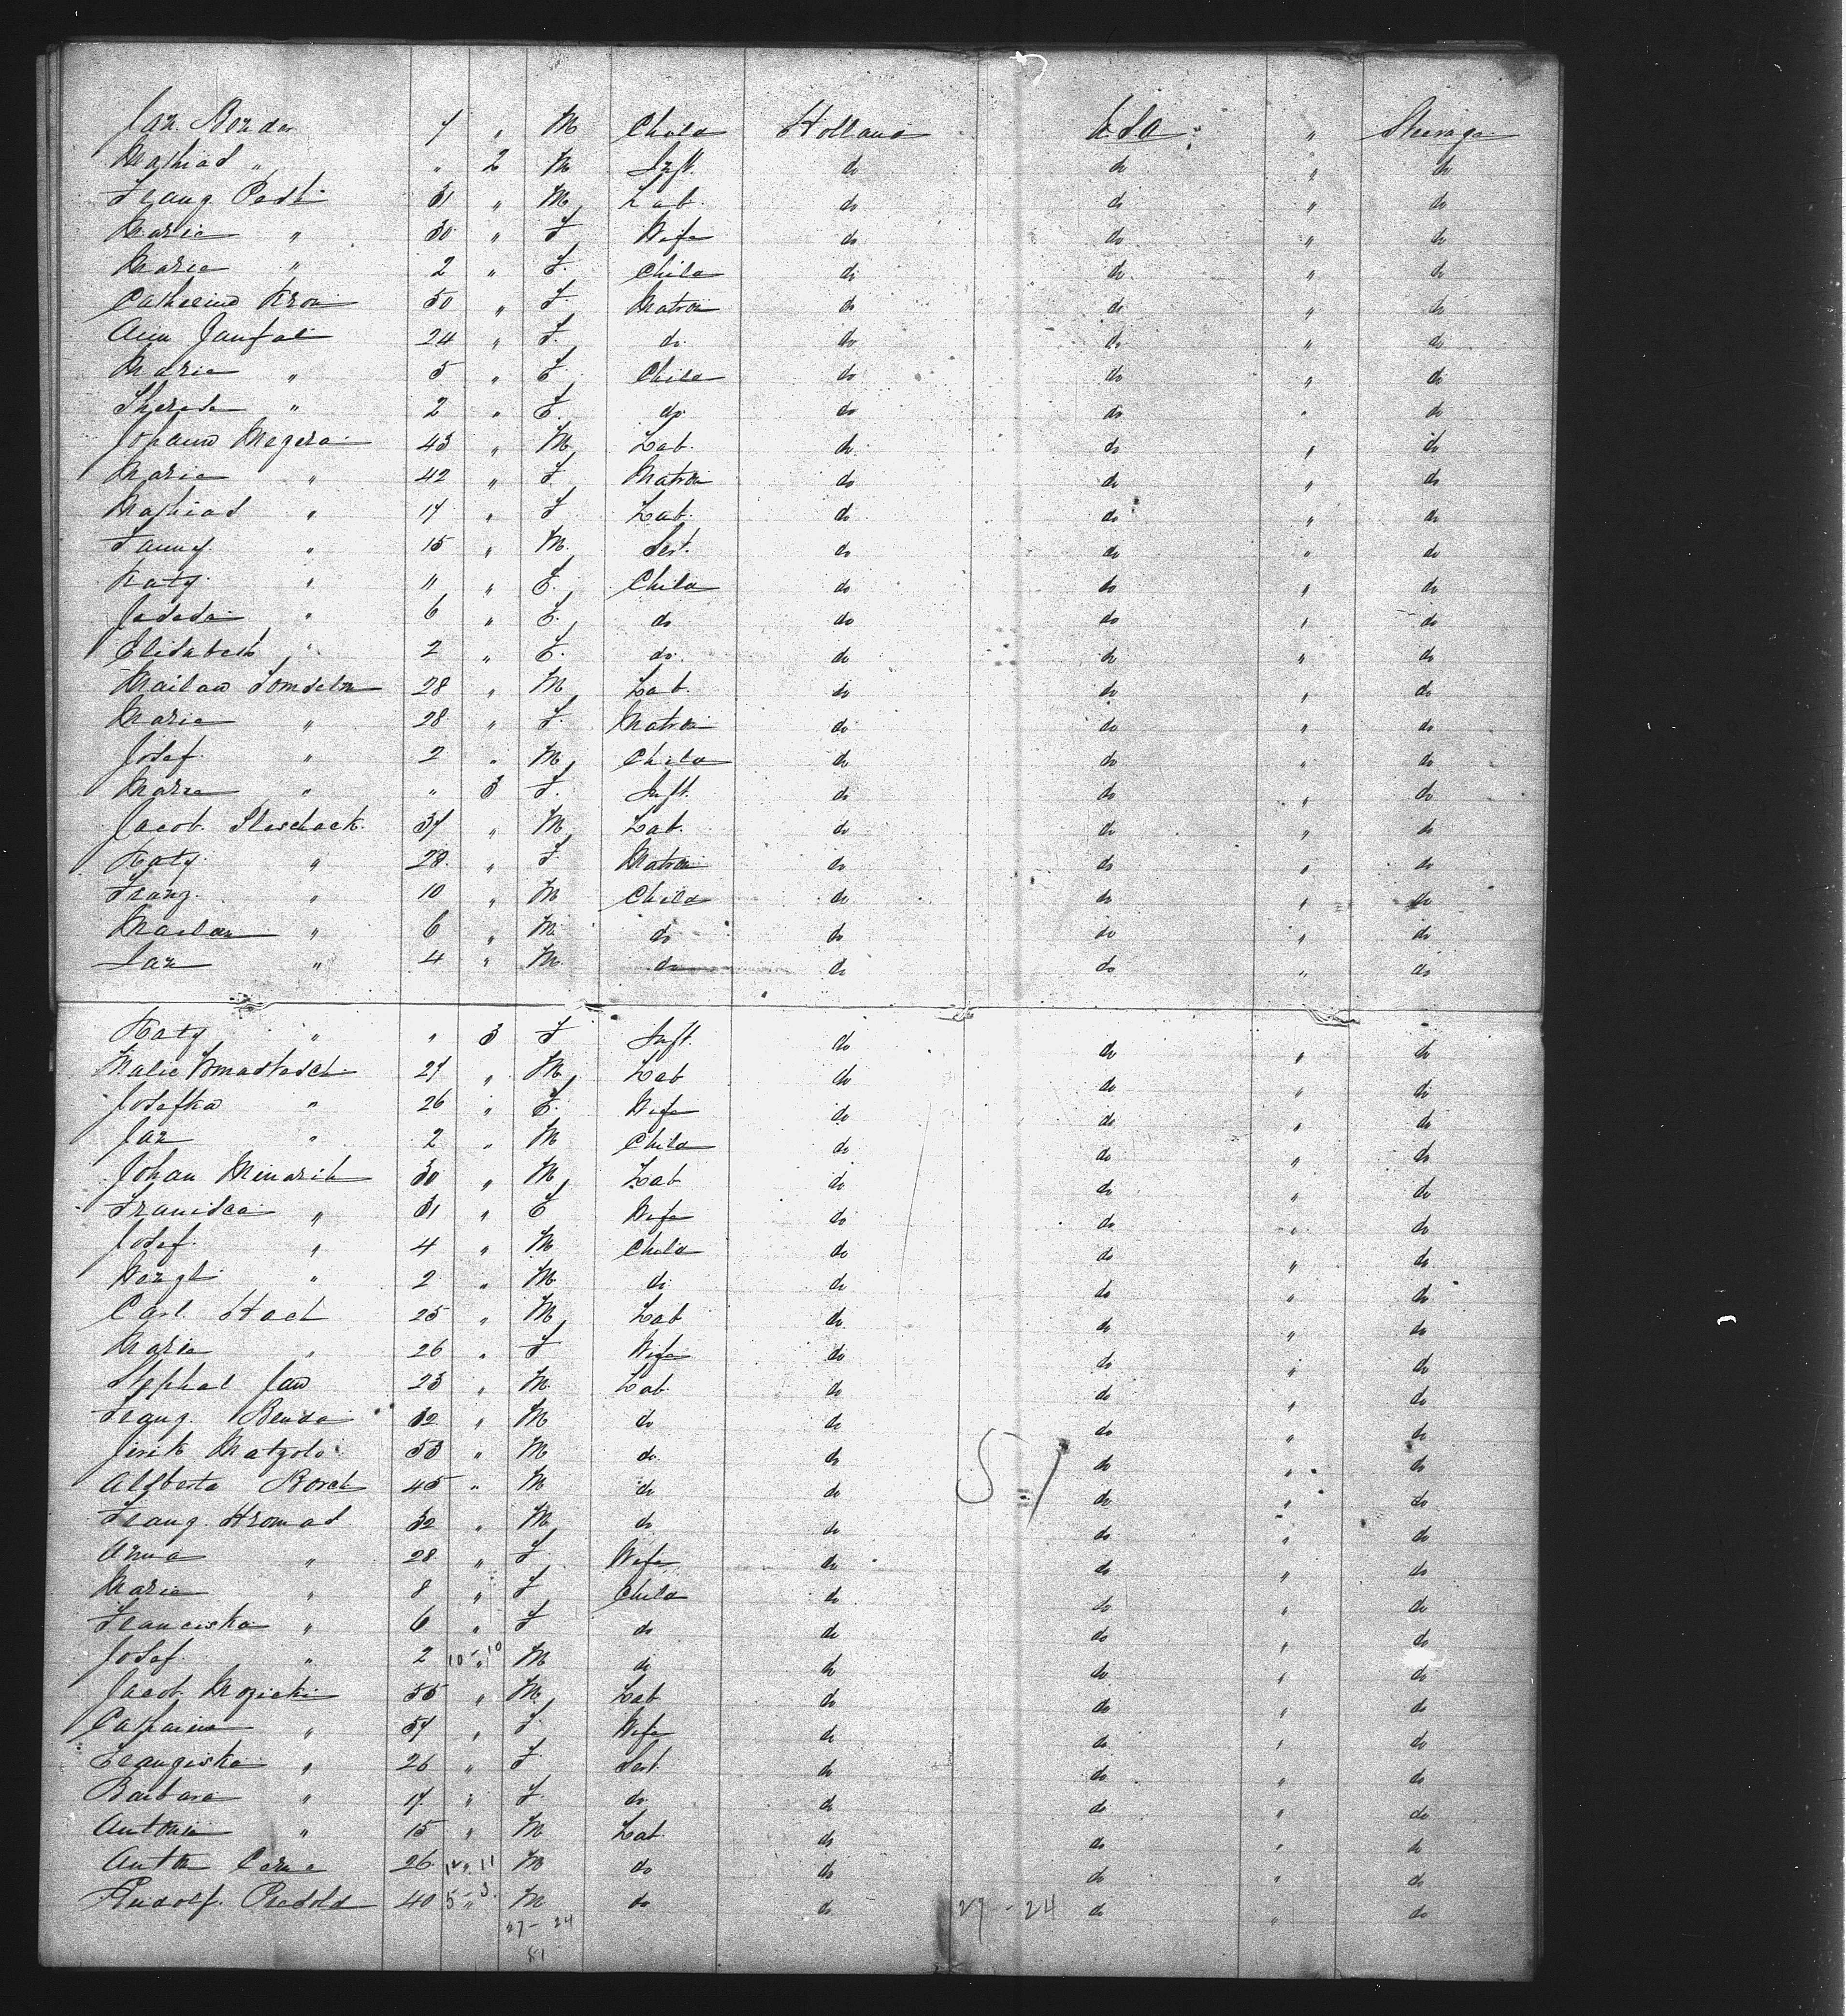 Jan Bonda 7 " M Child Holland U.S.A. " Steerage
Mathias " " 2 M Inft. do do " do
Franz Pesti 31 " M Lab. do do " do
Marie " 30 " F Wife do do " do
Marie " 2 " F. Child do do " do
Catherine Kron 50 " F. Matron do do " do
Ann 24 " F. do. do do " do
Marie " 5 " F. Child do do " do
" 2 " F. do do do " do
Johann Megera 43 " M Lab. do do " do
Marie " 42 " F Matron do do " do
Mathias " 17 " F Lab. do do " do
Fanny " 15 " M. Sert. do do " do
Katy " 11 " F. Child do do " do
" 6 " F. do do do " do
Elisabeth " 2 " F. do. do do " do
28 " M Lab. do do " do
Marie " 28 " F. Matron do do " do
Josef " 2 " M Child do do " do
Marie " " 3 F. Inft. do do " do
Jacob Sleschack 37 " M Lab. do do " do
Katy " 28 " F. Matron do do " do
Franz " 10 " M Child do do " do
" 6 " M do do do " do
Jan " 4 " M. do do do " do
Katy " " 3 F Inft. do do " do
27 " M Lab do do " do
Josefka " 26 " F. Wife do do " do
Jan " 2 " M Child do do " do
Johan Minarik 30 " M Lab do do " do
Francisca " 31 " F Wife do do " do
Josef " 4 " M Child do do " do
" 2 " M do do do " do
Carl Hach 25 " M Lab do do " do
Marie " 26 " F Wife do do " do
Stephal Jan 23 " M Lab. do do " do
Franz Benda 32 " M do do do " do
53 " M do. do do " do
Borch 45 " M do do do " do
Franz Hromad 32 " M do do do " do
Anna " 28 " F Wife do do " do
Marie " 8 " F Child do do " do
Franciska " 6 " F do do do " do
Josef " 2 10-10 " M do do do " do
Jacob Mozicki 55 " M Lab do do " do
Catharina " 57 " F. Wife do do " do
Franziska " 26 " F. Sert. do do " do
Barbara " 17 " F. do do do " do
Antonin " 15 " M Lab. do do " do
Anton Cerne 26 " 11 M do do do " do
Rudolf 40 5-3 " M do do do " do
51
27-24
81
27-24